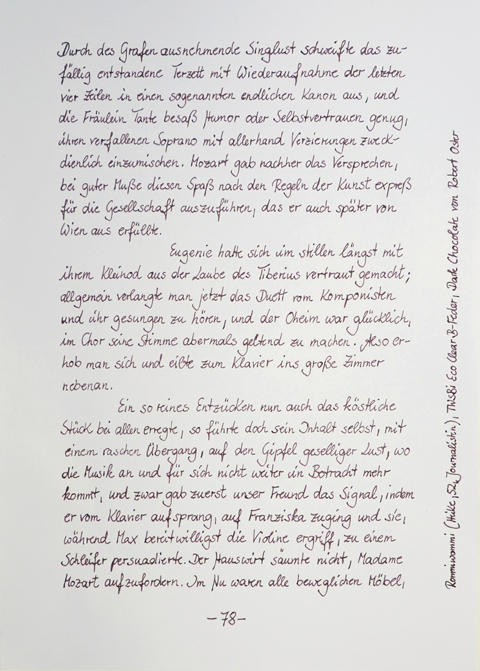 Durch des Grafen ausnehmende Singlust schweifte das zu-
fällig entstandene Terzett mit Wiederaufnahme der letzten
vier Zeilen in einen sogenannten endlichen Kanon aus, und
die Fräulein Tante besaß Humor oder Selbstvertrauen genug,
ihren verfallenen Soprano mit allerhand Verzierungen zweck-
dienlich einzumischen. Mozart gab nachher das Versprechen,
bei guter Muße diesen Spaß nach den Regeln der Kunst expreß
für die Gesellschaft auszuführen, das er auch später von
Wien aus erfüllte.
Eugenie hatte sich im stillen längst mit
ihrem Kleinod aus der Laube des Tiberius vertraut gemacht;
allgemein verlangte man jetzt das Duett vom Komponisten
und ihr gesungen zu hören, und der Oheim war glücklich,
im Chor seine Stimme abermals geltend zu machen. Also er-
hob man sich und eilte zum Klavier ins große Zimmer
nebenan.
Ein so reines Entzücken nun auch das köstliche
Stück bei allen erregte, so führte doch sein Inhalt selbst, mit
einem raschen Übergang, auf den Gipfel geselliger Lust, wo
die Musik an und für sich nicht weiter in Betracht mehr
kommt, und zwar gab zuerst unser Freund das Signal, indem
er vom Klavier aufsprang, auf Franziska zuging und sie,
während Max bereitwilligst die Violine ergriff, zu einem
Schleifer persuadierte. Der Hauswirt säumte nicht, Madame
Mozart aufzufordern. Im Nu waren alle beweglichen Möbel,
-78-
Rommiwommi (Hilke, 52, Journalistin), TWSBi Eco Clear B-Feder, Dark Chocolate von Robert Oster